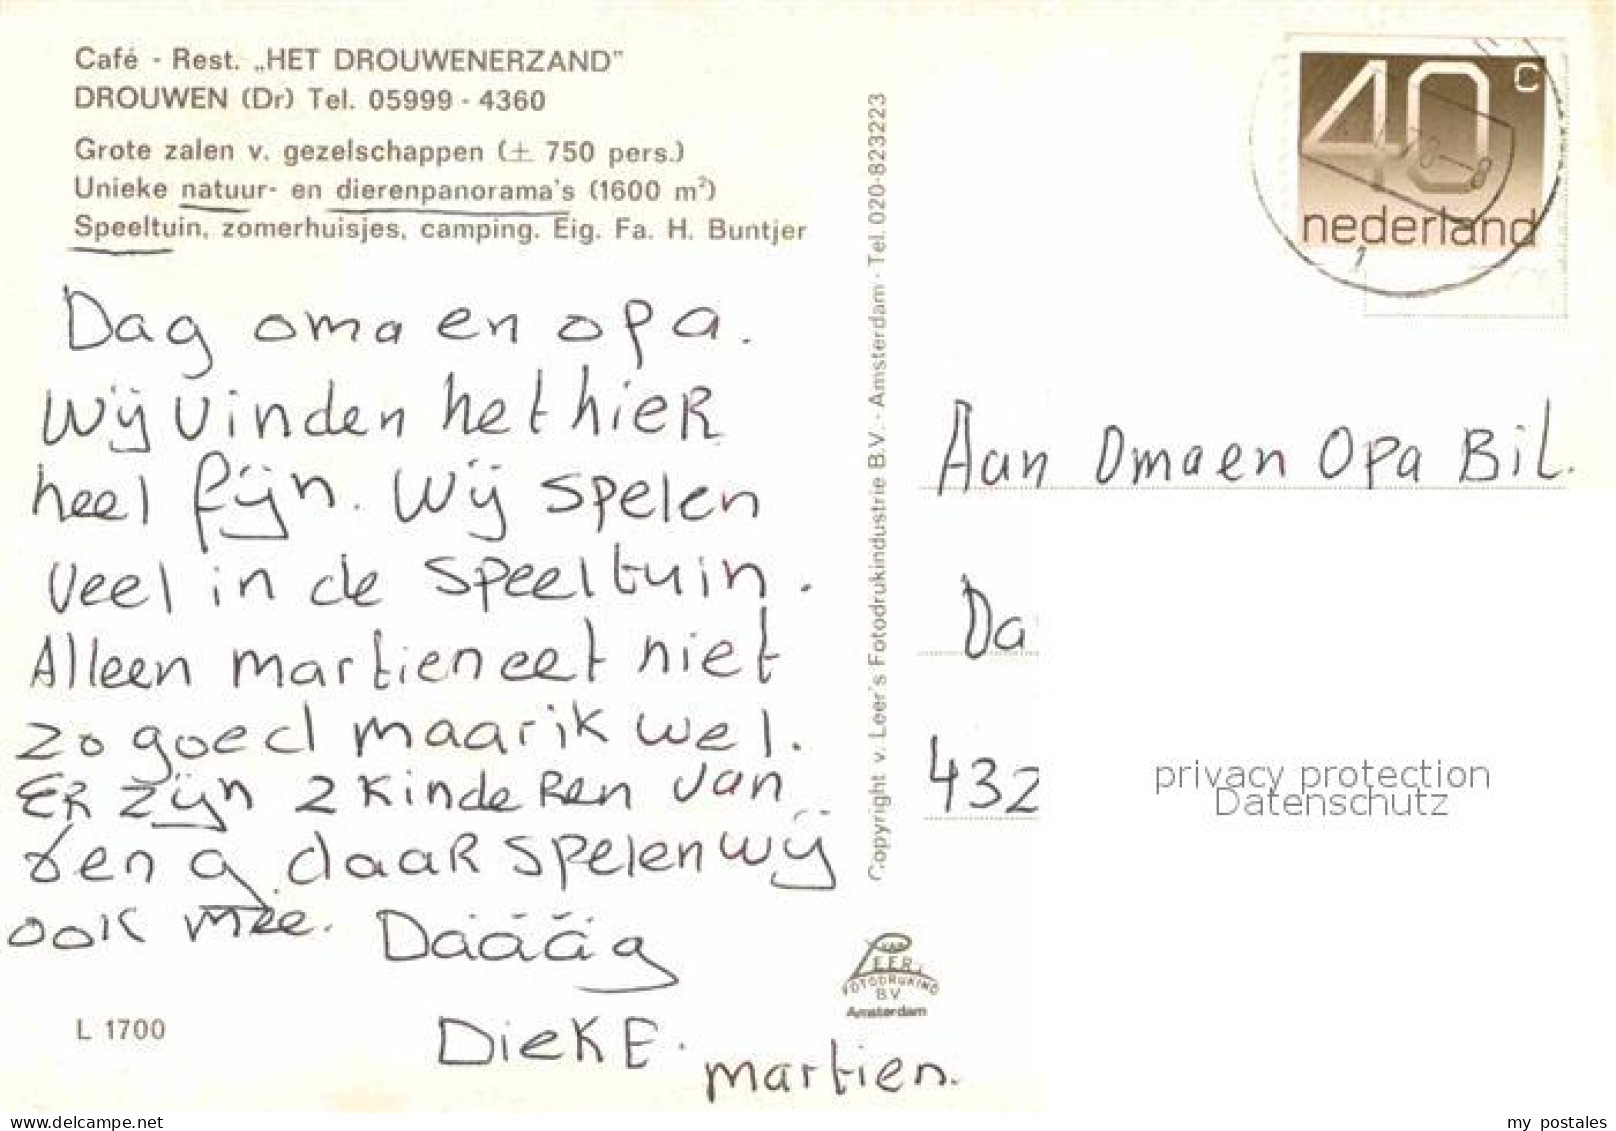 Café - Rest. „HET DROUWENERZAND”
DROUWEN (Dr) Tel. 05999 - 4360
Grote zalen v. gezelschappen (± 750 pers.)
Unieke natuur- en dierenpanorama's (1600 m²)
Speeltuin, zomerhuisjes, camping. Eig. Fa. H. Buntjer
Dag oma en opa.
Wij vinden het hier
heel fijn. Wij spelen
veel in de speeltuin.
Alleen martien eet niet
zo goed maar ik wel.
ER zijn 2 kinderen van
daar spelen wij
ook mee. Dááág
DiekE.
martien.
L 1700
Copyright v. Leer's Fotodrukindustrie B.V. - Amsterdam - Tel. 020-823223
VAN
LEER
FOTODRUKIND
B.V.
Amsterdam
40c
nederland
Aan Oma en Opa Bil.
Da
432
privacy protection
Datenschutz
delcampe.net
my_postales